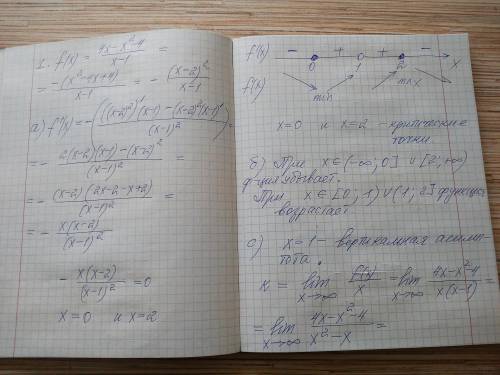 1. f'(x) = (4x-x²-4)/(x-1) =
= -(x²-4x+4)/(x-1) = - (x-2)²/(x-1)
а) f'(x) = -(((x-2)²)'(x-1)-(x-2)²(x-1)')/(x-1)² =
= - (2(x-2)(x-1)-(x-2)²)/(x-1)² =
= - (x-2)(2x-2-x+2)/(x-1)² =
= - x(x-2)/(x-1)²
- x(x-2)/(x-1)² = 0
x=0 и x=2
f'(x) - + + -
0 1 2 x
f(x) min max
x=0 и x=2 - критические
точки.
б) При x∈(-∞;0] ∪ [2;+∞)
ф-ция убывает.
При x∈[0;1)∪(1;2] функция
возрастает
с) x=1 - вертикальная асимп-
тота.
k = lim x→∞ f(x)/x = lim x→∞ (4x-x²-4)/(x(x-1)) =
= lim x→∞ (4x-x²-4)/(x²-x) =